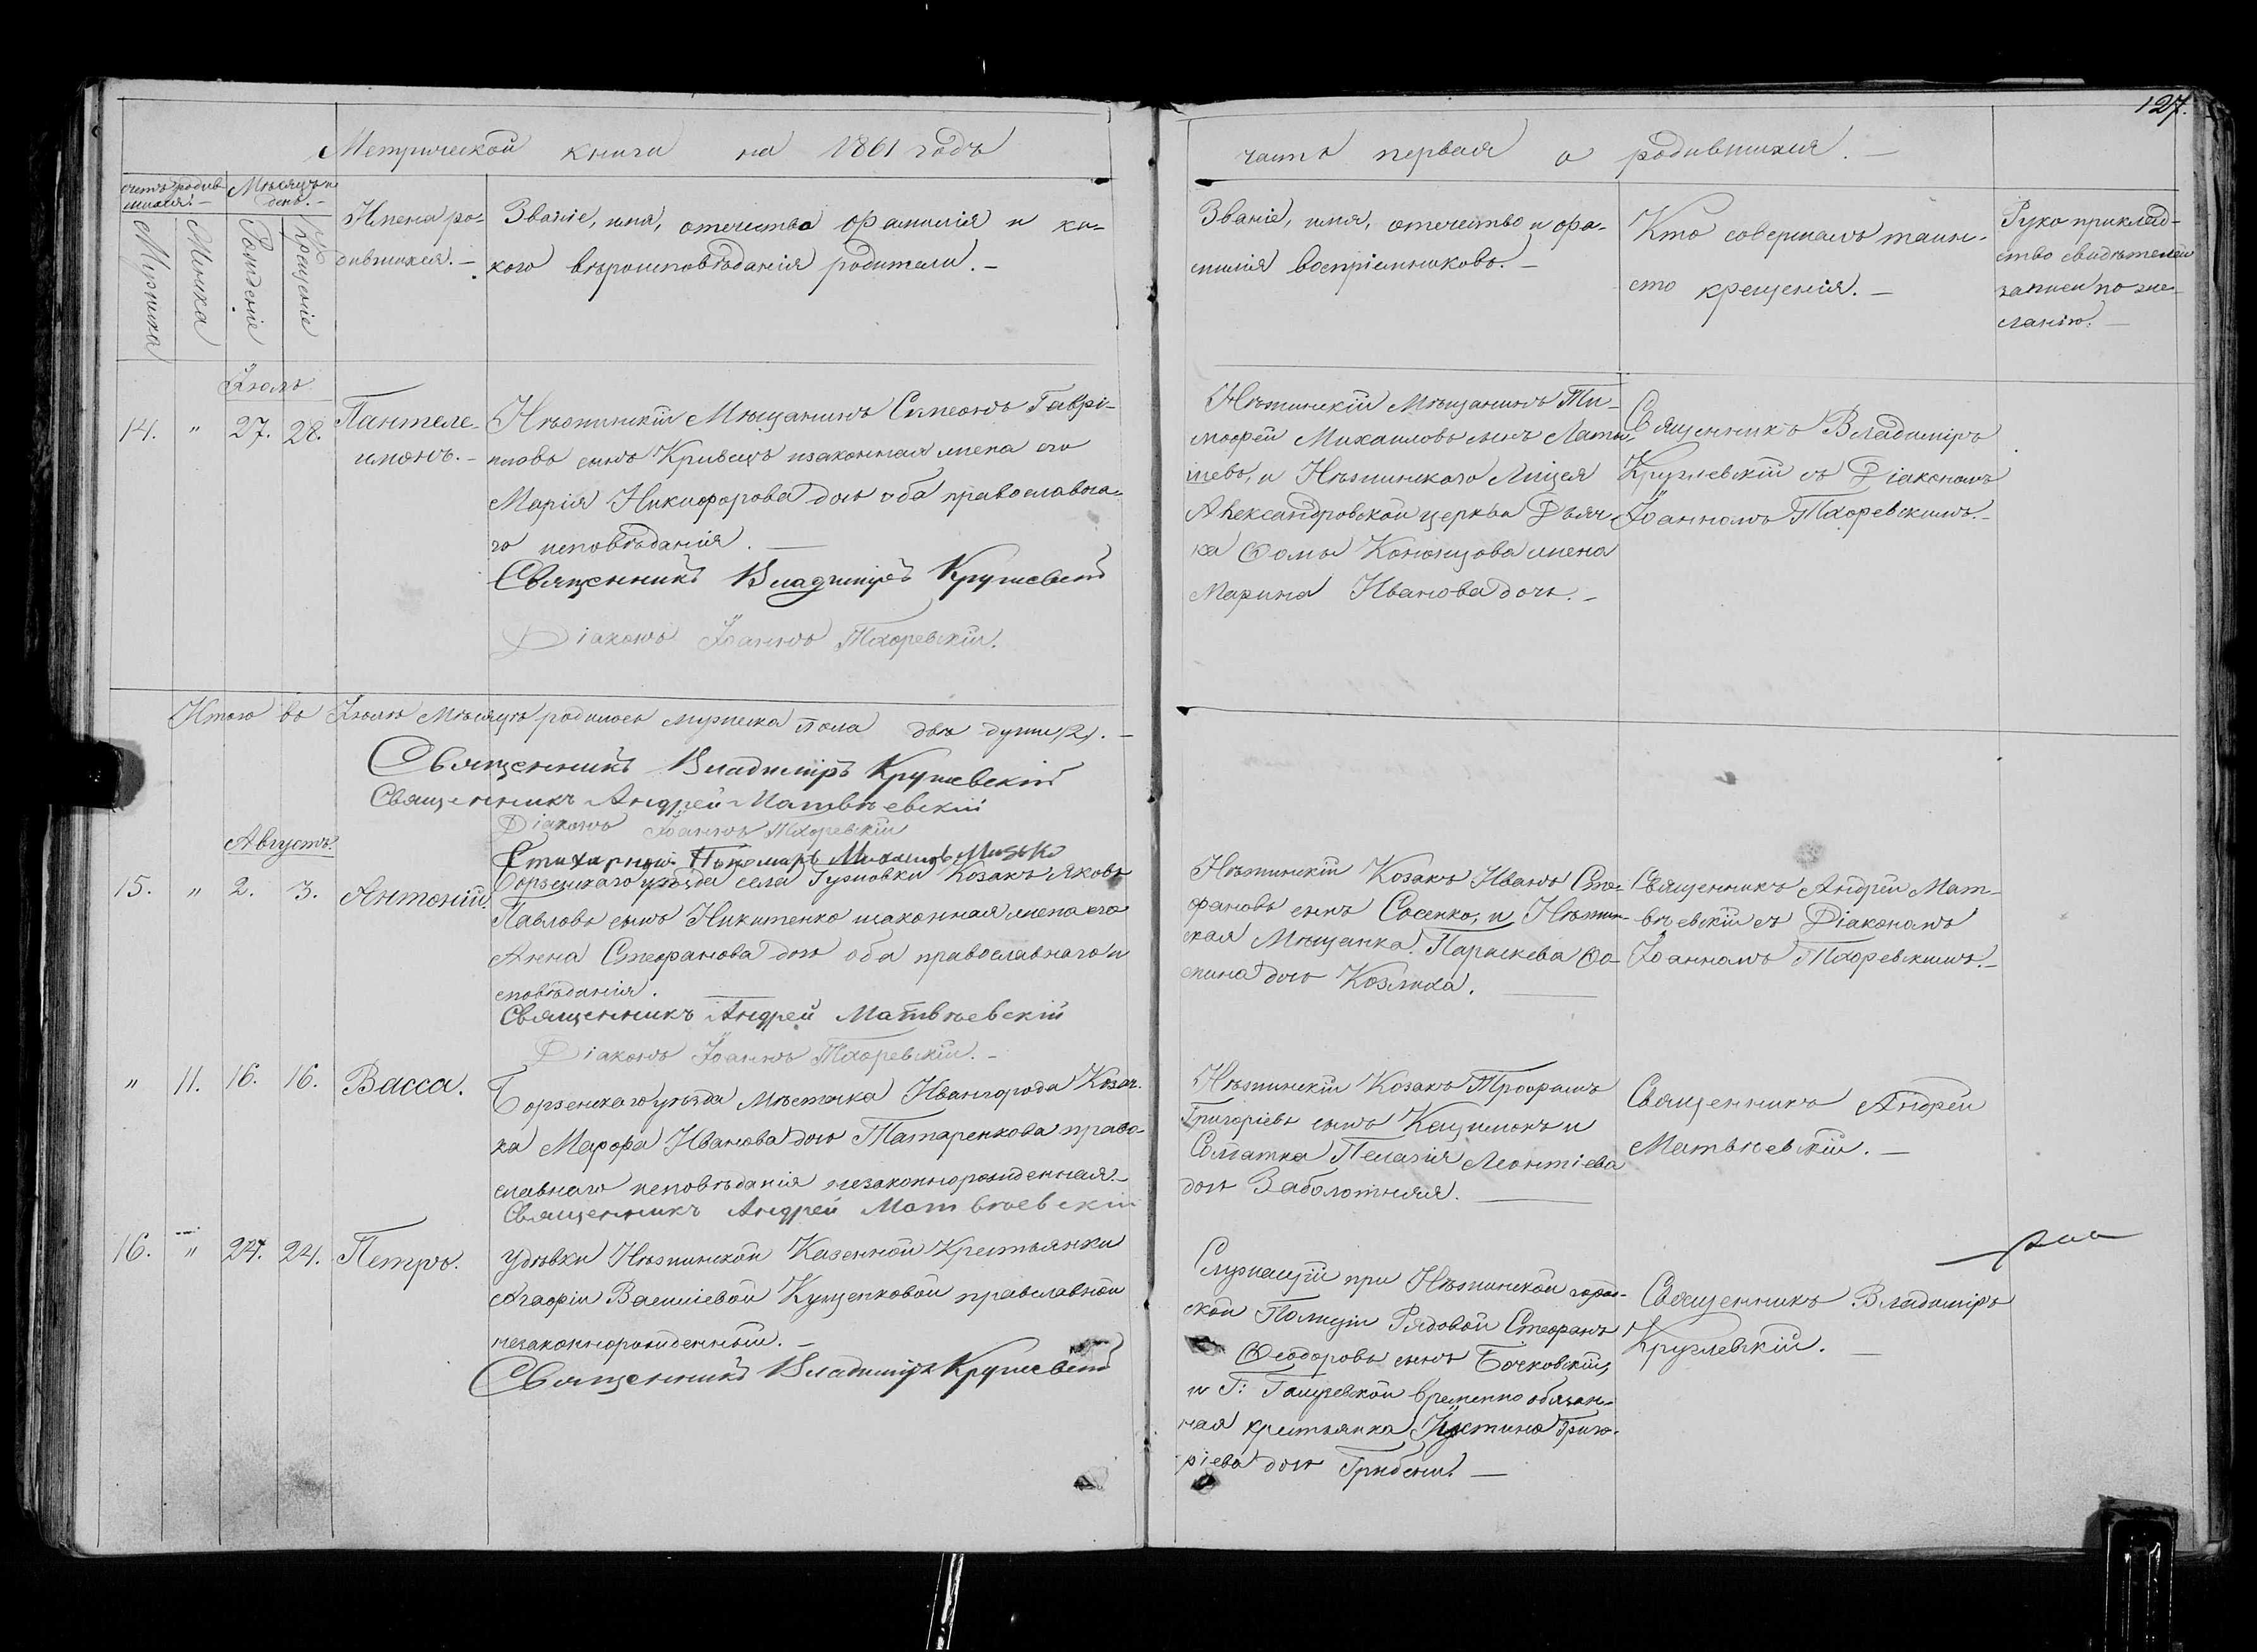 127.
Метрической книги на 1861 годъ
часть первая о родившихся. —
счетъ родив
шихся. —
Мѣсяцъ и
день. —
Мужика
Женска
Рожденіе
Крещеніе
Имена ро-
дившихся. —
Званіе, имя, отечество фамилія и ка-
кого вѣроисповѣданія родители. —
Званіе, имя, отечество и фа-
милія воспріемниковъ. —
Кто совершалъ таин-
ство крещенія. —
Рукоприклад-
ство свидѣтелей
записи по же-
ланію. —
Іюль
14. " 27. 28.
Пантеле-
имонъ. —
Нѣжинскій Мѣщанинъ Симеонъ Гаврі-
иловъ сынъ Кривецъ изаконная жена его
Марія Никифорова дочь оба православна-
го исповѣданія. —
Священникъ Владиміръ Круглевскій
Діаконъ Іоаннъ Тхоревскій.
Нѣжинскій Мѣщанинъ Ти-
мофей Михаиловъ сынъ Латы-
шевъ, и Нѣжинскаго Лицея
Александровской церкви Дьяч-
ка Ѳомы жена
Марина Иванова дочь. —
Священникъ Владиміръ
Круглевскій съ Діакономъ
Іоанномъ Тхоревскимъ. —
Итого въ Іюлѣ Мѣсяцѣ родилось мужеска пола двѣ души (2). —
Священникъ Владиміръ Круглевскій
Священникъ Андрей Матвѣевскій
Діаконъ Іоаннъ Тхоревскій
Стихарный Пономарь Михаилъ
Августъ.
15. " 2. 3. Антоній.
Борзенскаго уѣзда села Гужовки Козакъ Яковъ
Павловъ сынъ Никитенко изаконная жена его
Анна Стефанова дочь оба православнаго и
сповѣданія. —
Священникъ Андрей Матвѣевскій
Діаконъ Іоаннъ Тхоревскій. —
Нѣжинскій Козакъ Иванъ Сте-
фановъ сынъ Сосенко, и Нѣжин-
ская Мѣщанка Параскева Ѳо-
мина дочь Козлиха. —
Священникъ Андрей Мат-
вѣевскій съ Діакономъ
Іоанномъ Тхоревскимъ. —
" 11. 16. 16. Васса.
Борзенскаго уѣзда Мѣстечка Ивангорода Козач-
ка Марфа Иванова дочь Татаренкова право-
славнаго исповѣданія незаконнорожденная. —
Священникъ Андрей Матвѣевскій
Нѣжинскій Козакъ Трофимъ
Григоріевъ сынъ и
Солдатка Пелагія Леонтіева
дочь Заболотняя. —
Священникъ Андрей
Матвѣевскій. —
16. " 24. 24. Петръ.
Удѣвки Нѣжинской Казенной Крестьянки
Агафіи Василіевой Кущенковой православной
незаконнорожденный. —
Священникъ Владиміръ Круглевскій
Служащій при Нѣжинской город-
ской Полиціи Рядовой Стефанъ
Ѳеодоровъ сынъ Бочковскій,
и Г: временно обязан-
ная крестьянка Іустина Григо-
ріева дочь —
Священникъ Владиміръ
Круглевскій. —